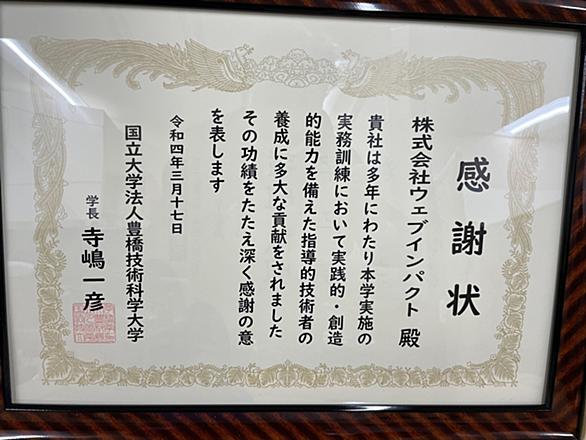 感謝状
株式会社ウェブインパクト 殿
貴社は多年にわたり本学実施の
実務訓練において実践的・創造
的能力を備えた指導的技術者の
養成に多大な貢献をされました
その功績をたたえ深く感謝の意
を表します
令和四年三月十七日
国立大学法人豊橋技術科学大学
学長 寺嶋一彦